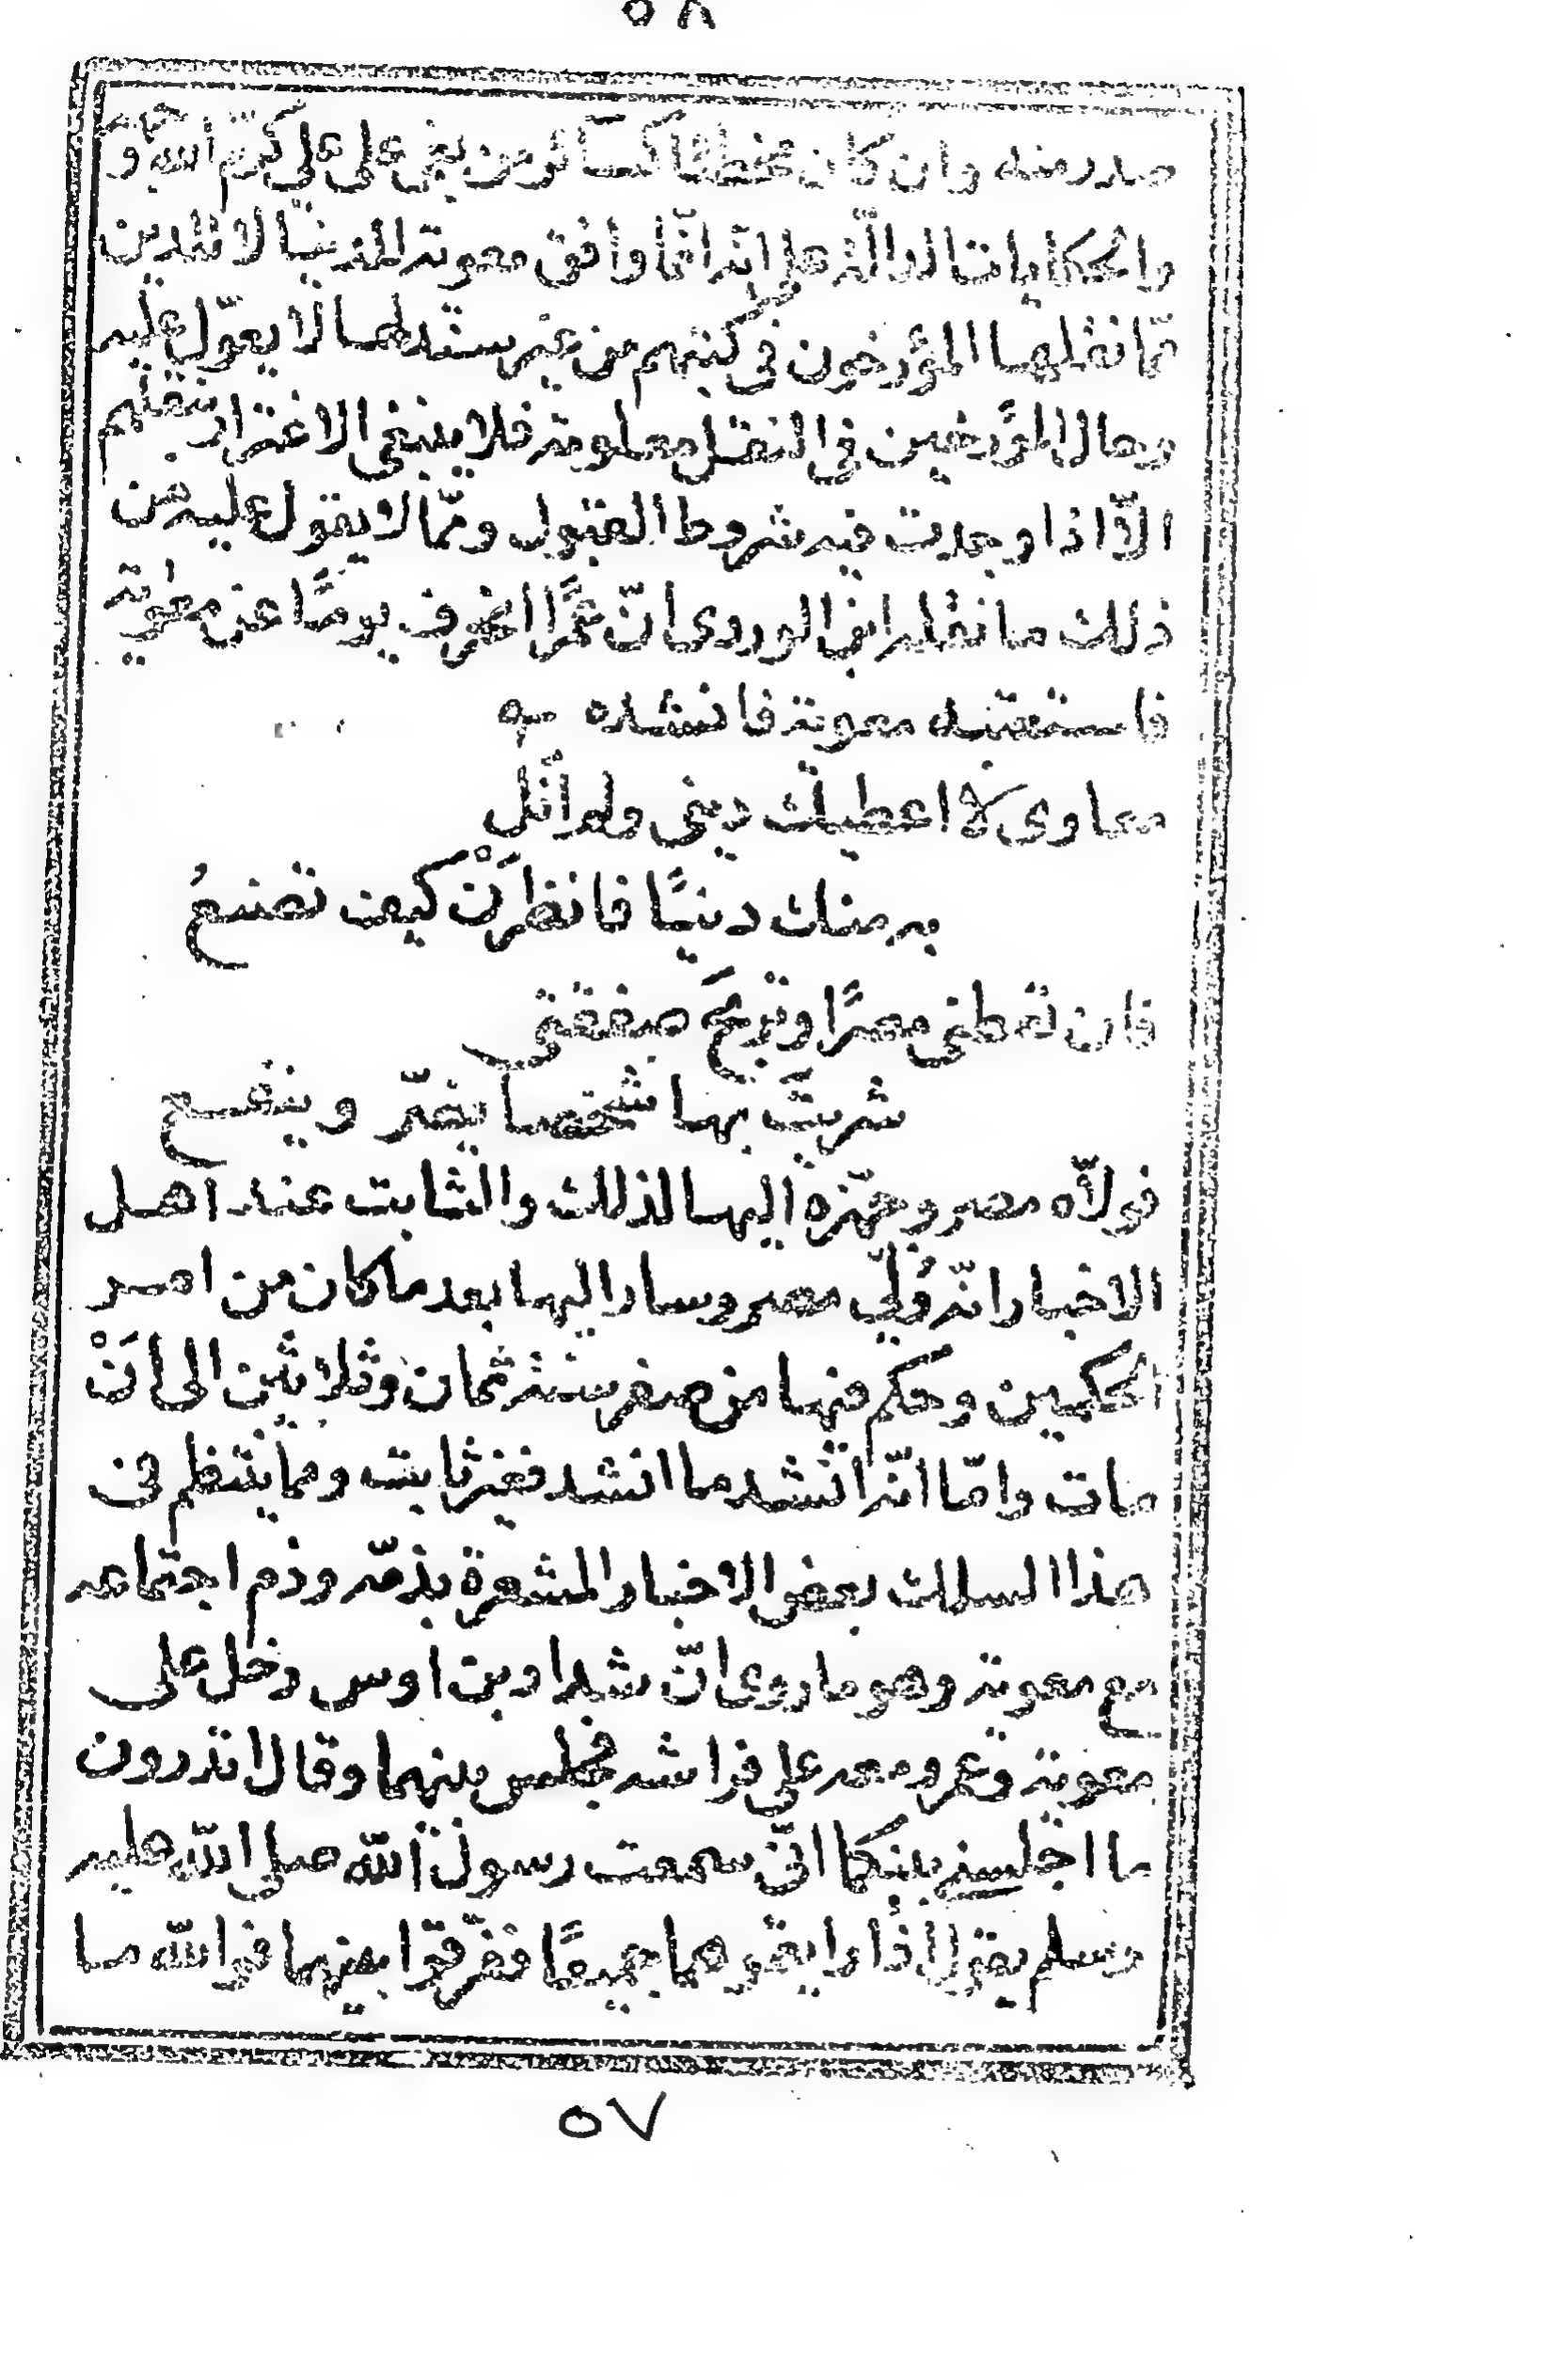 ٥٨
صدر منه وان كان مخطئا كسائر من بغى على علي كرّم الله وجهه
والحكايات الدالّة على انّه انّما وافق معوية للدنيا لا للدين
ممّا نقلها المؤرخون في كتبهم من غير سند لها لا يعوّل عليه
وحال المؤرخين في النقل معلومة فلا ينبغي الاغترار بنقلهم
الّا اذا وجدت فيه شروط القبول وممّا لا يعول عليه من
ذلك ما نقله ابن الوردي انّ عمرًا انحرف يومًا عن معوية
فاستعتبه معوية فانشده
معاوي لا اعطيك ديني ولم أنل
به منك دنيًا فانظرَنْ كيف تصنعُ
فان تعطني مصرًا وتربحَ صفقتي
شريتَ بها شخصا يضرّ وينفع
فولّاه مصر وجهّزه اليها لذلك والثابت عند اهل
الاخبار انّه وُلّي مصر وسار اليها بعد ما كان من امر
الحكمين وحكم فيها من صفر سنة ثمان وثلاثين الى اَنْ
مات وامّا انّه انشد ما انشد فغير ثابت ومما ينتظم في
هذا السلك بعض الاخبار المشعرة بذمّه وذم اجتماعه
مع معوية وهو ما روى انّ شداد بن اوس دخل على
معوية وعمرو معه على فراشه فجلس بينهما وقال اتدرون
ما اجلسني بينكما انّي سمعت رسول الله صلى الله عليه
وسلم يقول اذا رايتموهما جميعًا ففرّقوا بينهما فوالله ما
٥٧